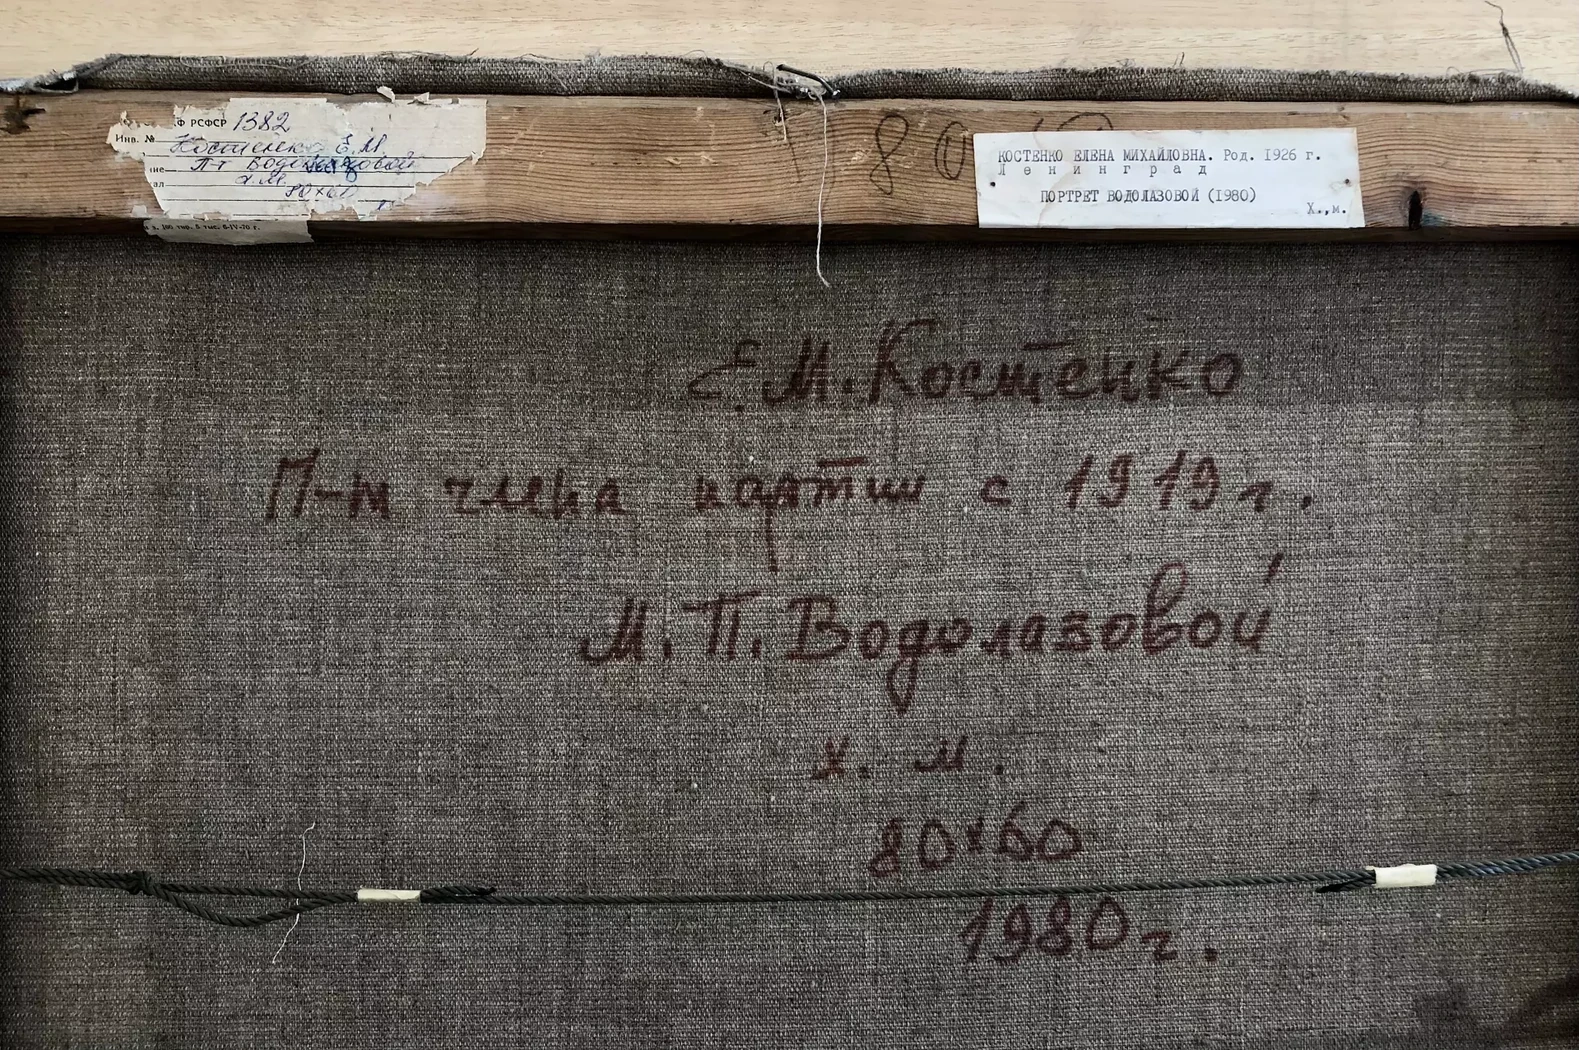 Ф РСФСР 1382
Инв. № Костенко Е.М
П-т Водолазовой
80х60
5 тыс. 6-IV-70 г.
80
КОСТЕНКО ЕЛЕНА МИХАЙЛОВНА. Род. 1926 г.
Ленинград
ПОРТРЕТ ВОДОЛАЗОВОЙ (1980)
Х.,м.
Е.М.Костенко
П-т члена партии с 1919 г.
М.П.Водолазовой
х. м.
80х60
1980 г.